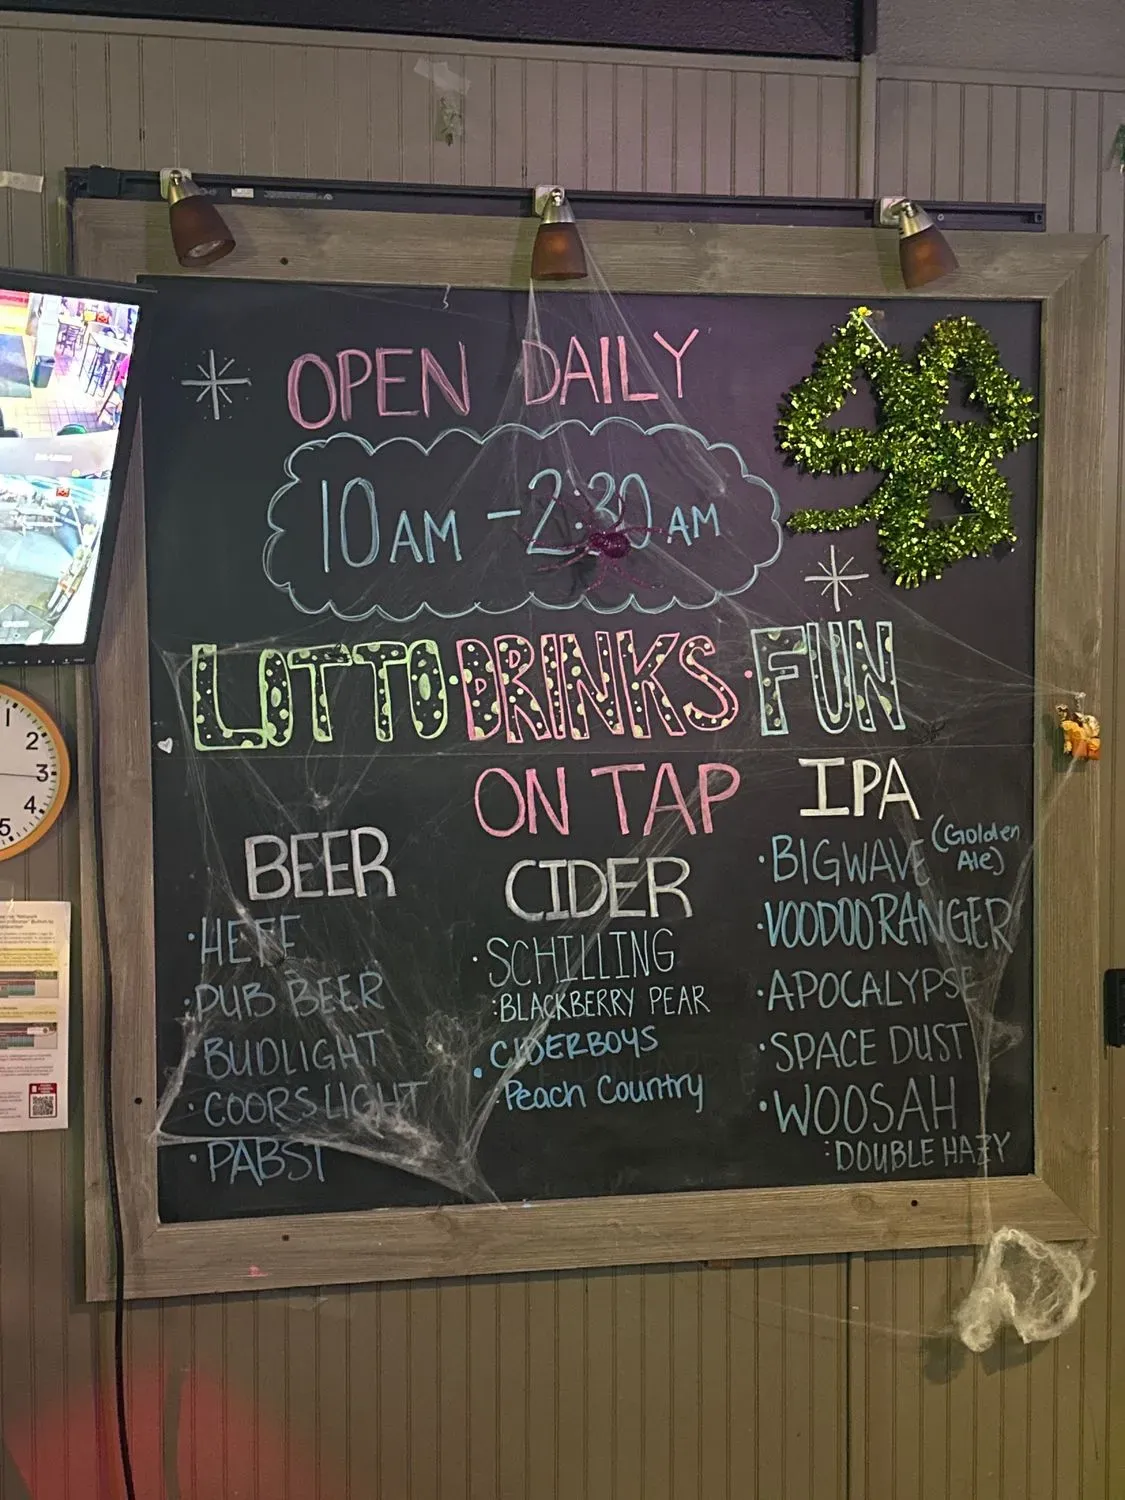 OPEN DAILY
10AM - 2:30AM
LOTTO · DRINKS · FUN
ON TAP
BEER
· HEFE
· PUB BEER
· BUDLIGHT
· COORS LIGHT
· PABST
CIDER
· SCHILLING
: BLACKBERRY PEAR
CIDERBOYS
· Peach Country
IPA
· BIGWAVE (Golden
Ale)
· VOODOO RANGER
· APOCALYPSE
· SPACE DUST
· WOOSAH
: DOUBLE HAZY
1
2
3
4
5